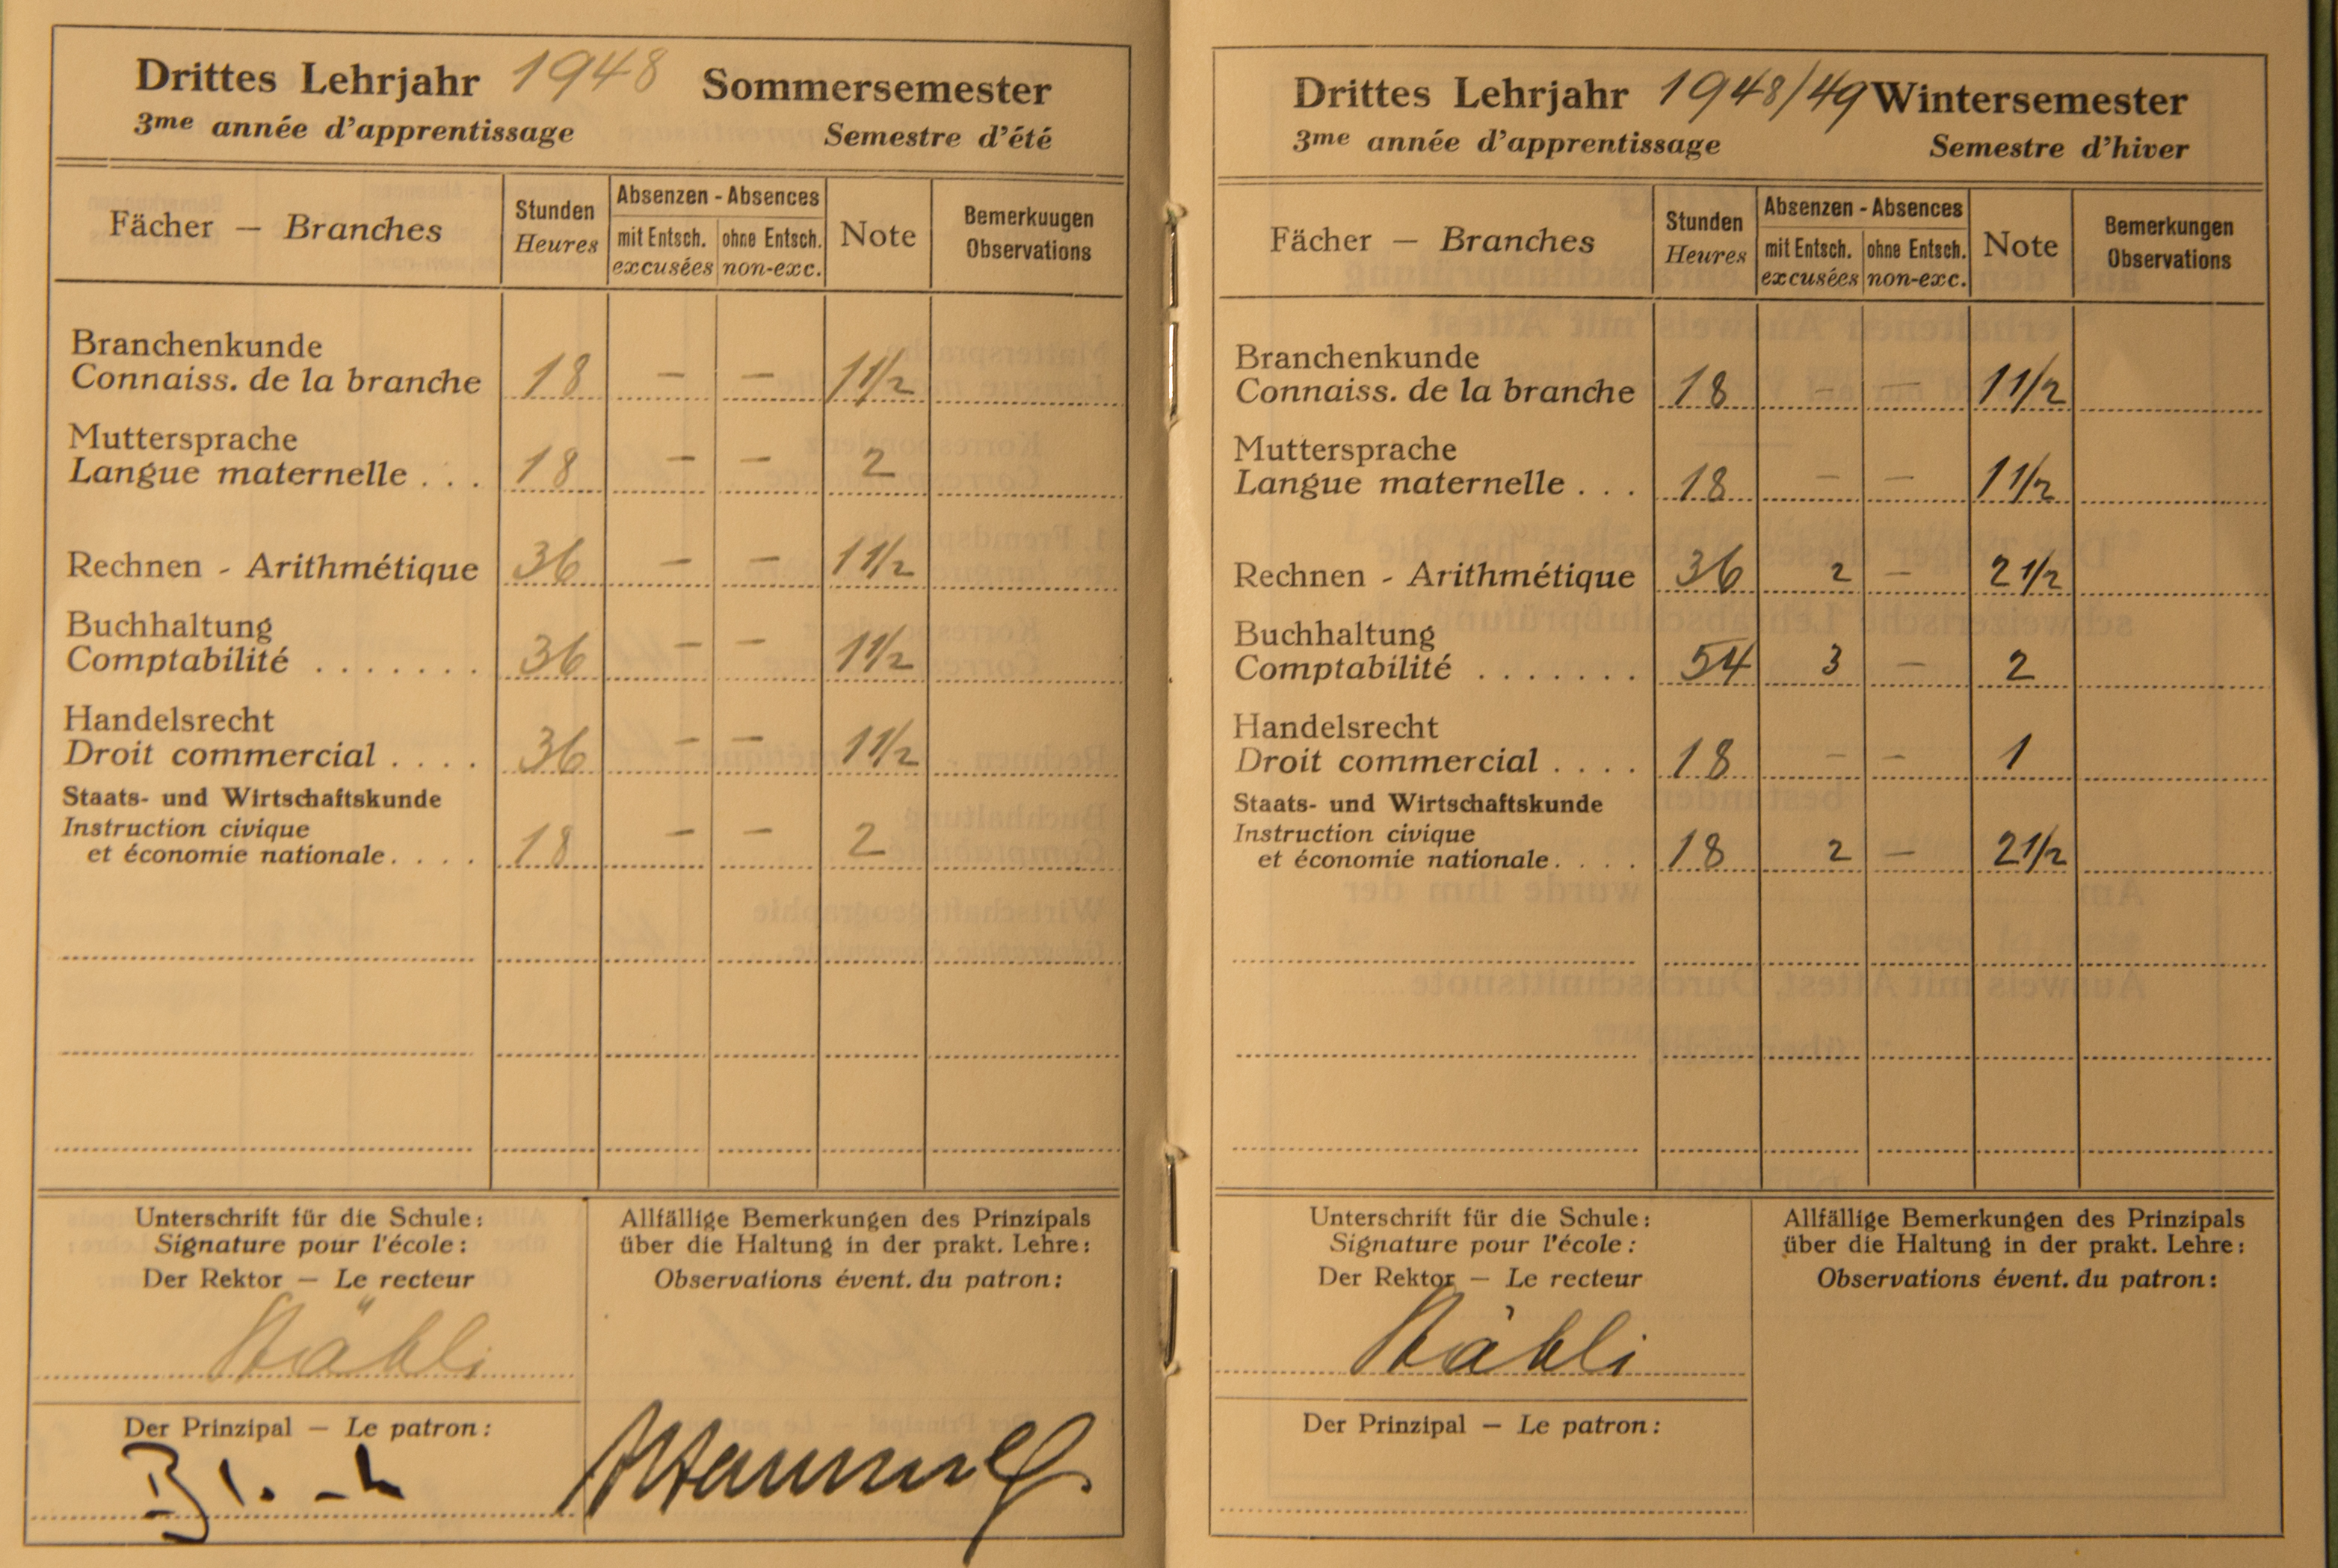 Drittes Lehrjahr 1948 Sommersemester
3me année d'apprentissage Semestre d'été
Fächer — Branches Stunden Heures Absenzen - Absences mit Entsch. excusées ohne Entsch. non-exc. Note Bemerkuugen Observations
Branchenkunde
Connaiss. de la branche 18 — — 1 1/2
Muttersprache
Langue maternelle . . . 18 — — 2
Rechnen - Arithmétique 36 — — 1 1/2
Buchhaltung
Comptabilité . . . . . . . 36 — — 1 1/2
Handelsrecht
Droit commercial . . . . 36 — — 1 1/2
Staats- und Wirtschaftskunde
Instruction civique
et économie nationale. . . . 18 — — 2
Unterschrift für die Schule:
Signature pour l'école:
Der Rektor — Le recteur
Stähli
Der Prinzipal — Le patron:
Allfällige Bemerkungen des Prinzipals
über die Haltung in der prakt. Lehre:
Observations évent. du patron:
Drittes Lehrjahr 1948/49 Wintersemester
3me année d'apprentissage Semestre d'hiver
Fächer — Branches Stunden Heures Absenzen - Absences mit Entsch. excusées ohne Entsch. non-exc. Note Bemerkungen Observations
Branchenkunde
Connaiss. de la branche 18 — — 1 1/2
Muttersprache
Langue maternelle . . . 18 — — 1 1/2
Rechnen - Arithmétique 36 2 — 2 1/2
Buchhaltung
Comptabilité . . . . . . . 54 3 — 2
Handelsrecht
Droit commercial . . . . 18 — — 1
Staats- und Wirtschaftskunde
Instruction civique
et économie nationale. . . . 18 2 — 2 1/2
Unterschrift für die Schule:
Signature pour l'école:
Der Rektor — Le recteur
Stähli
Der Prinzipal — Le patron:
Allfällige Bemerkungen des Prinzipals
über die Haltung in der prakt. Lehre:
Observations évent. du patron: